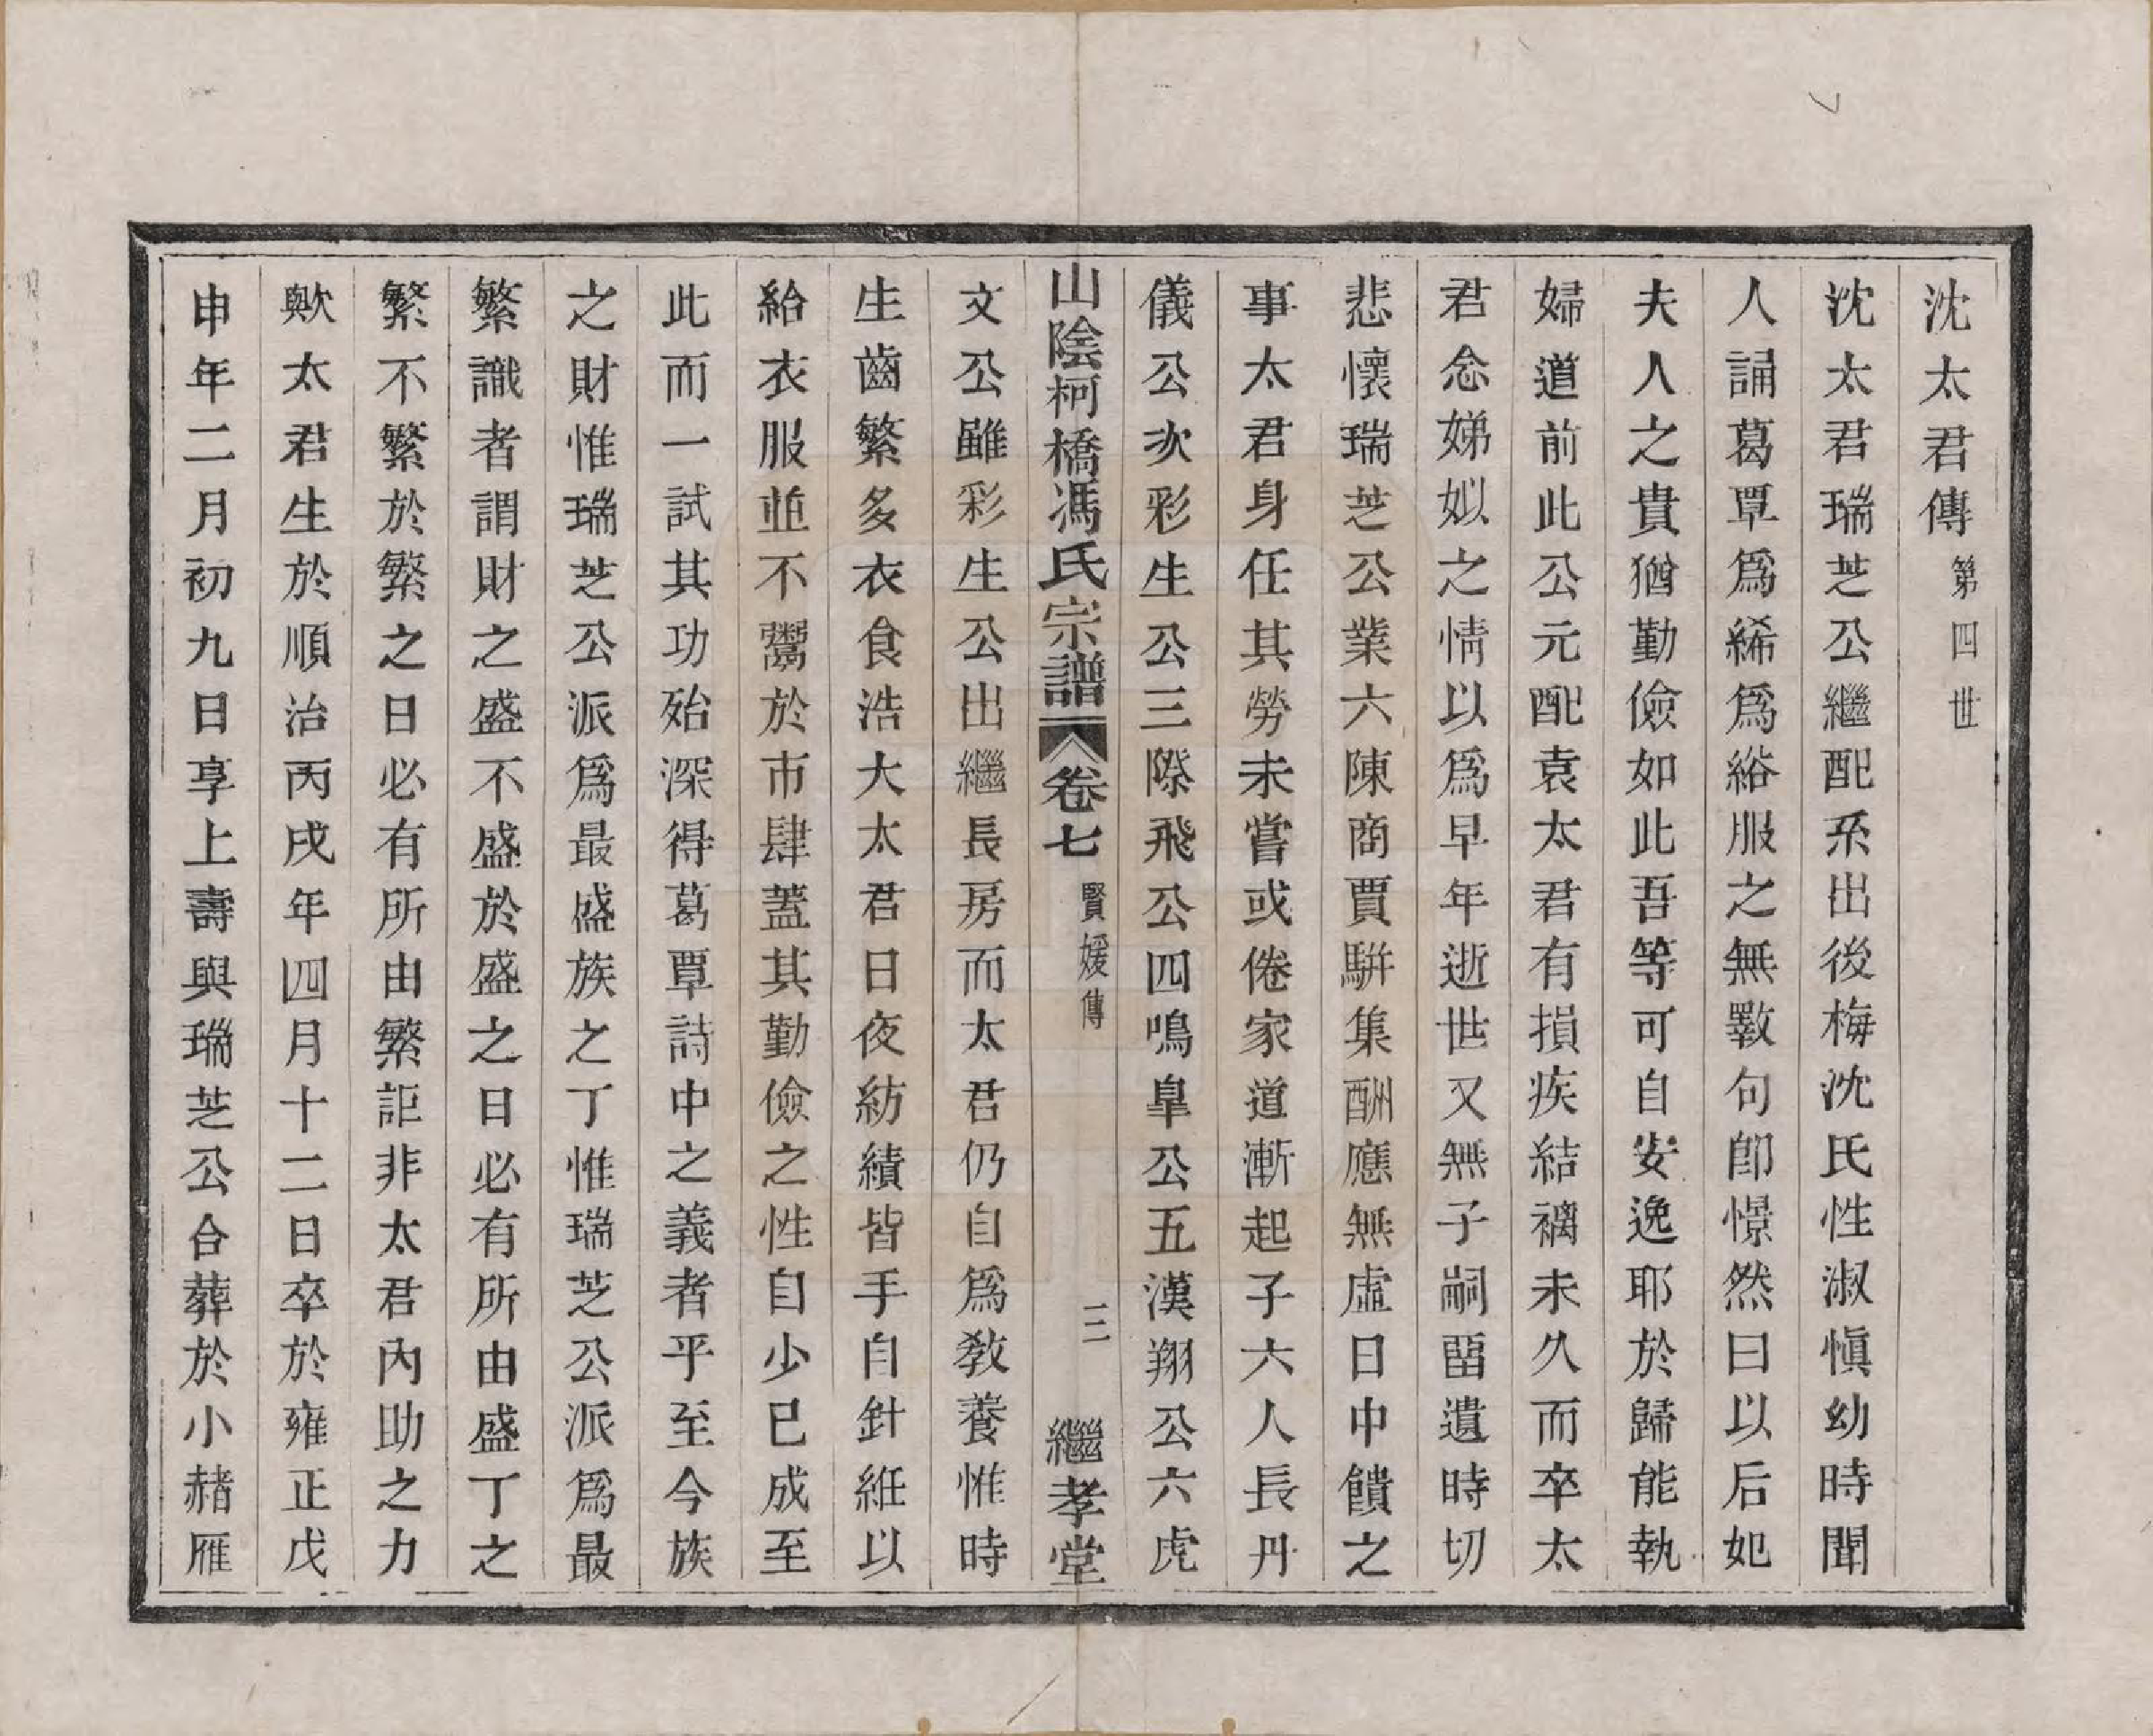 沈太君傳 第四世
沈太君瑞芝公繼配系出後梅沈氏性淑愼幼時聞
人誦葛覃爲絺爲綌服之無斁句卽憬然曰以后妃
夫人之貴猶勤儉如此吾等可自安逸耶於歸能執
婦道前此公元配袁太君有損疾結褵未久而卒太
君念娣姒之情以爲早年逝世又無子嗣畱遺時切
悲懷瑞芝公業六陳商賈駢集酬應無虛日中饋之
事太君身任其勞未嘗或倦家道漸起子六人長丹
儀公次彩生公三際飛公四鳴臯公五漢翔公六虎
山陰柯橋馮氏宗譜 卷七 賢媛傳 三 繼孝堂
文公雖彩生公出繼長房而太君仍自爲敎養惟時
生齒繁多衣食浩大太君日夜紡績皆手自針紝以
給衣服並不鬻於市肆蓋其勤儉之性自少已成至
此而一試其功殆深得葛覃詩中之義者乎至今族
之財惟瑞芝公派爲最盛族之丁惟瑞芝公派爲最
繁識者謂財之盛不盛於盛之日必有所由盛丁之
繁不繁於繁之日必有所由繁詎非太君內助之力
歟太君生於順治丙戌年四月十二日卒於雍正戊
申年二月初九日享上壽與瑞芝公合葬於小赭雁